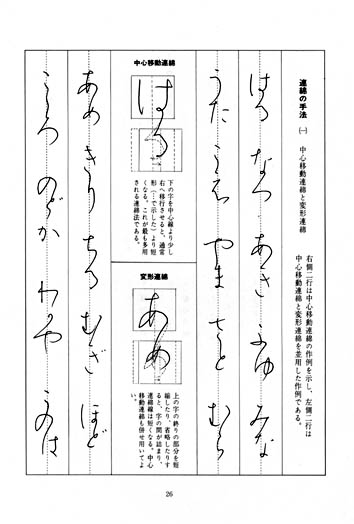 連綿の手法 ㈠ 中心移動連綿と変形連綿
右側二行は中心移動連綿の作例を示し、左側二行は
中心移動連綿と変形連綿を並用した作例である。
はる なつ あき ふゆ みな
うた こえ やま さと むら
中心移動連綿
はる
下の字を中心線より少し
右へ移行させると、通常
形(…で示した)より短
くなる。これが最も多用
される連綿法である。
変形連綿
あめ
上の字の終りの部分を短
縮したり、省略したりす
ると、字の間が詰まり、
連綿線は短くなる。中心
移動連綿も併せ用いてよ
い。
あめ きり ちる むぎ ほど
こころ のどか わかや
26